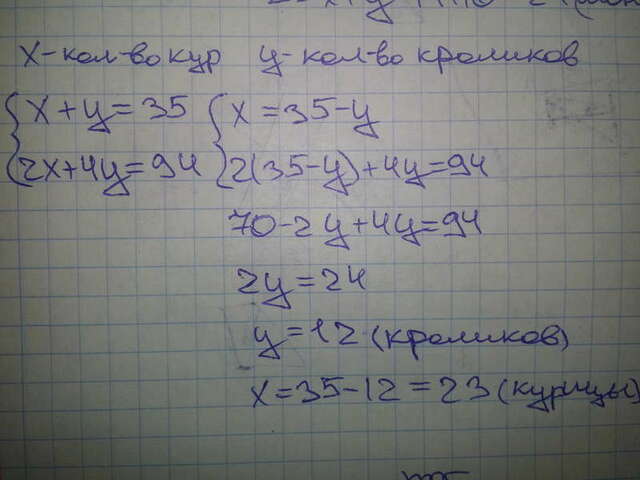 x-кол-во кур y-кол-во кроликов
x+y=35 x=35-y
2x+4y=94 2(35-y)+4y=94
70-2y+4y=94
2y=24
y=12 (кроликов)
x=35-12=23 (курицы)